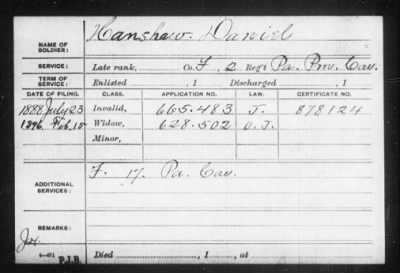 Hanshaw. Daniel
NAME OF SOLDIER:
SERVICE: Late rank, Co. F, 2 Reg't Pa. Prov. Cav.
TERM OF SERVICE: Enlisted , 1 Discharged , 1
DATE OF FILING. CLASS. APPLICATION NO. LAW. CERTIFICATE NO.
1888 July 23 Invalid, 665.483 J. 878124
1896 Feb. 18 Widow, 628.502 O. J.
Minor,
F. 17. Pa. Cav.
ADDITIONAL SERVICES:
REMARKS:
Died , 1 , at
P.I.B.